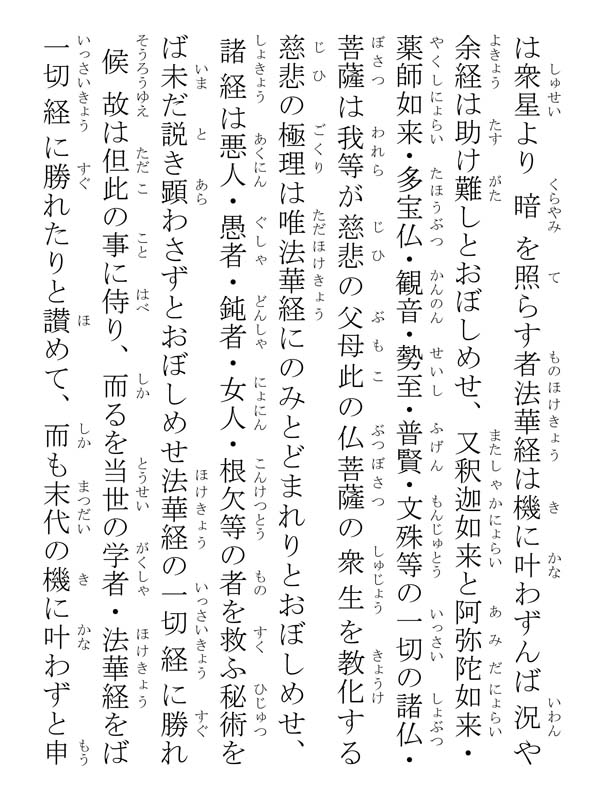 は衆星より暗を照らす者法華経は機に叶わずんば況や
余経は助け難しとおぼしめせ、又釈迦如来と阿弥陀如来・
薬師如来・多宝仏・観音・勢至・普賢・文殊等の一切の諸仏・
菩薩は我等が慈悲の父母此の仏菩薩の衆生を教化する
慈悲の極理は唯法華経にのみとどまれりとおぼしめせ、
諸経は悪人・愚者・鈍者・女人・根欠等の者を救ふ秘術を
ば未だ説き顕わさずとおぼしめせ法華経の一切経に勝れ
候故は但此の事に侍り、而るを当世の学者・法華経をば
一切経に勝れたりと讃めて、而も末代の機に叶わずと申